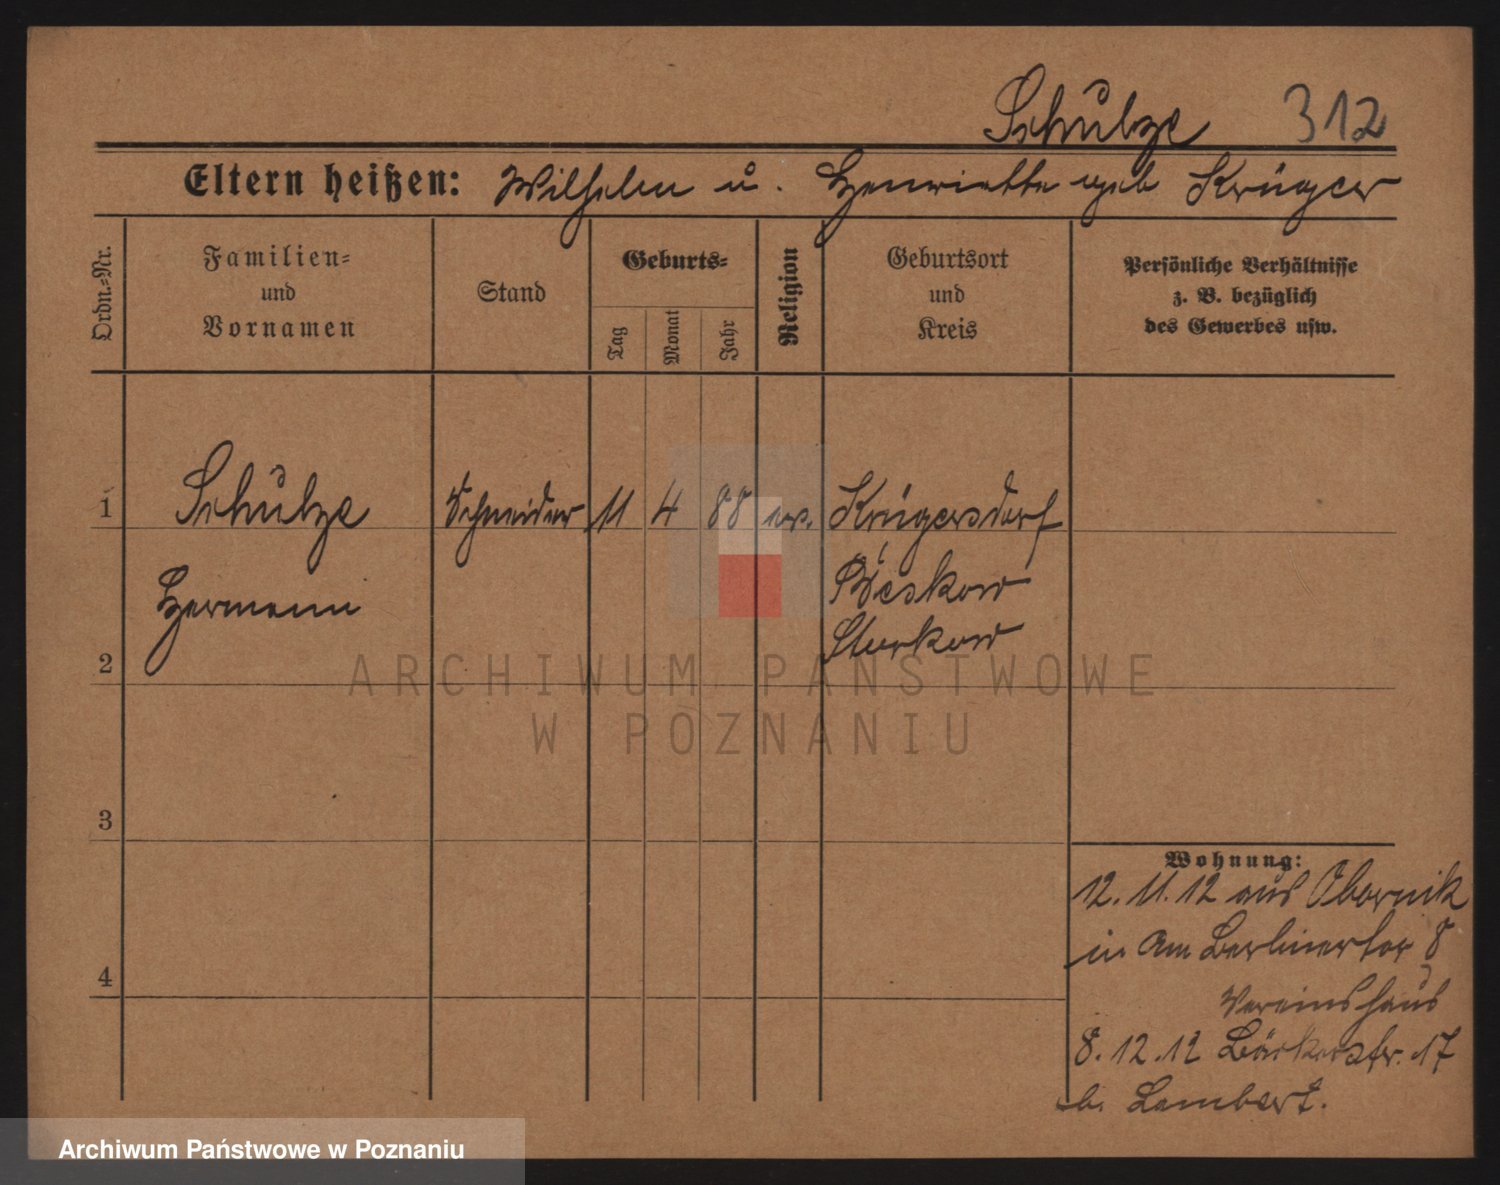 Schulze 312
Eltern heißen: Wilhelm u. Henriette geb Krüger
Ordn.-Nr.
Familien-
und
Vornamen
Stand
Geburts-
Tag
Monat
Jahr
Religion
Geburtsort
und
Kreis
Persönliche Verhältnisse
z. B. bezüglich
des Gewerbes usw.
1 Schulze Schneider 11 4 88 ev. Krügersdorf
Hermann Beeskow
Storkow
2
3
4
Wohnung:
12.11.12 aus Obornik
in Am Berlinertor 8
Vereinshaus
8.12.12 Bäckerstr. 17
b. Lambert.
ARCHIWUM PAŃSTWOWE
W POZNANIU
Archiwum Państwowe w Poznaniu